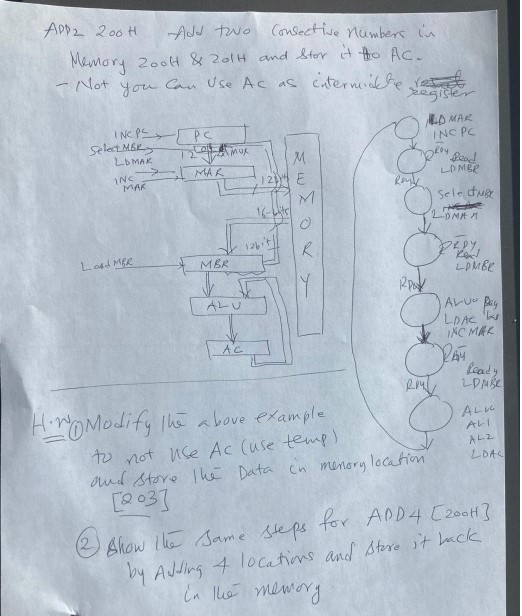 ADD2 200H - Add two Consective numbers in
Memory 200H & 201H and stor it to AC.
- Not you Can Use AC as
register
INC PC
PC
Select MBR
MUX
LDMAR
12
INC
MAR
MAR
12b
MEMORY
16-bits
12bit
Load MBR
MBR
ALU
AC
LDMAR
INC PC
RDY
Read
LDMBR
RDY
Select MBR
LDMAR
RDY
Read
LDMBR
RDY
ALU
LDAC
INC MAR
RDY
Ready
LDMBR
RDY
ALU
AL1
AL2
LDAC
H.W ① Modify the above example
to not use AC (use temp)
and store the Data in memory location
[203]
② Show the same steps for ADD4 [200H]
by Adding 4 locations and store it back
in the memory